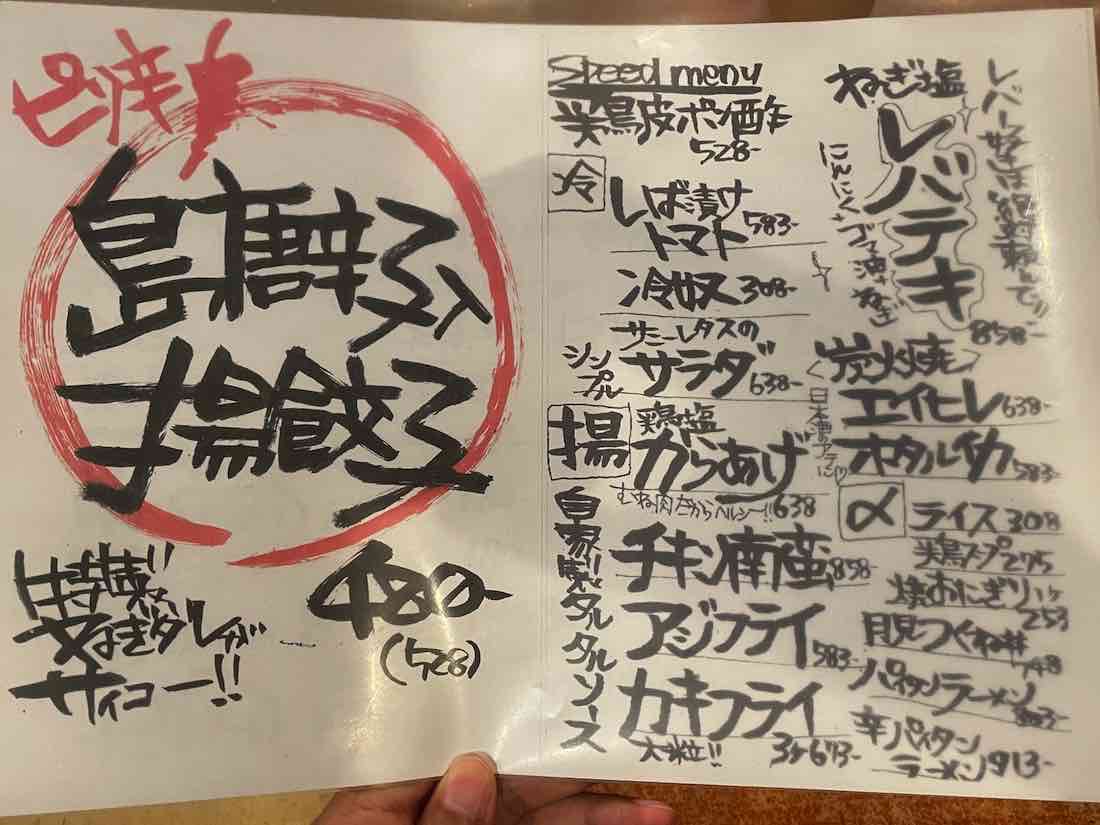 島唐辛子入
揚餃子
特製
ねぎダレが
サイコー!!
480-
(528)
Speed menu
鶏皮ポン酢
528-
冷
しば漬け
トマト 583-
冷奴 308-
サニーレタスの
シンプル
サラダ 638-
揚
鶏塩
からあげ
むね肉だからヘルシー!! 638
自家製タルタルソース
チキン南蛮 858-
アジフライ 583-
カキフライ
大粒!! 3ヶ673-
ねぎ塩
レバテキ
にんにく
858-
炭火焼
エイヒレ 638-
ホタルイカ 583-
〆
ライス 308
鶏スープ 275
焼おにぎり
253
月見つくね丼
748
パイタンラーメン
辛パイタン
ラーメン 913-